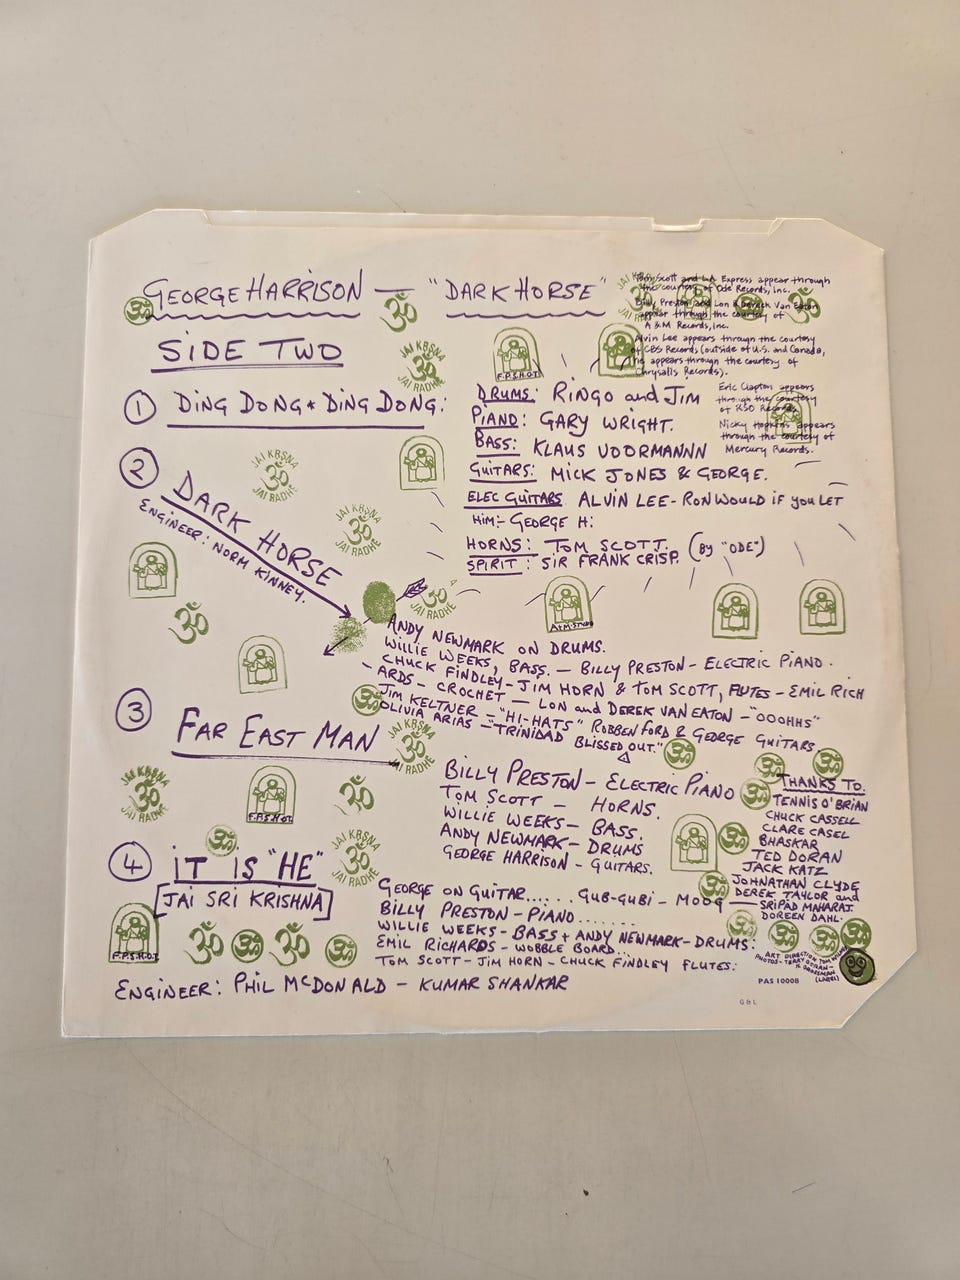 GEORGE HARRISON — "DARK HORSE"
SIDE TWO
Tom Scott and L.A. Express appear through
the courtesy of Ode Records, inc.
Billy Preston and Lon & Derrek Van Eaton
appear through the courtesy of
A & M Records, inc.
Alvin Lee appears through the courtesy
of CBS Records (outside of U.S. and Canada,
he appears through the courtesy of
Chrysalls Records).
Eric Clapton appears
through the courtesy
of RSO Records.
Nicky Hopkins appears
through the courtesy of
Mercury Records.
① DING DONG * DING DONG:
DRUMS: RINGO and JIM
PIANO: GARY WRIGHT.
BASS: KLAUS VOORMANNN
GUITARS: MICK JONES & GEORGE.
ELEC GUITARS ALVIN LEE - RON WOULD IF YOU LET
HIM:- GEORGE H:
HORNS: TOM SCOTT. (BY "ODE")
SPIRIT: SIR FRANK CRISP.
② DARK HORSE
ENGINEER: NORM KINNEY.
ANDY NEWMARK ON DRUMS.
WILLIE WEEKS, BASS. — BILLY PRESTON - ELECTRIC PIANO.
CHUCK FINDLEY - JIM HORN & TOM SCOTT, FLUTES - EMIL RICH
- ARDS - CROCHET — LON and DEREK VAN EATON - "OOOHHS"
JIM KELTNER - "HI-HATS" ROBBEN FORD & GEORGE GUITARS
OLIVIA ARIAS - "TRINIDAD BLISSED OUT."
③ FAR EAST MAN
BILLY PRESTON - ELECTRIC PIANO
TOM SCOTT — HORNS.
WILLIE WEEKS - BASS.
ANDY NEWMARK - DRUMS
GEORGE HARRISON - GUITARS.
THANKS TO:
TENNIS O'BRIAN
CHUCK CASSELL
CLARE CASEL
BHASKAR
TED DORAN
JACK KATZ
JOHNATHAN CLYDE
DEREK TAYLOR and
SRIPAD MAHARAJ
DOREEN DAHL.
④ IT IS "HE"
[JAI SRI KRISHNA]
GEORGE ON GUITAR...... GUB-GUBI - MOOG
BILLY PRESTON - PIANO .......
WILLIE WEEKS - BASS + ANDY NEWMARK - DRUMS:
EMIL RICHARDS - WOBBLE BOARD...
TOM SCOTT - JIM HORN - CHUCK FINDLEY FLUTES:
ENGINEER: PHIL McDONALD - KUMAR SHANKAR
ART DIRECTION TOM WILKES
PHOTOS - TERRY DORAN -
(LABEL)
PAS 10008
G & L
JAI KRSNA
ॐ
JAI RADHE
F.P.S.H.O.T.
A+M STUDIO